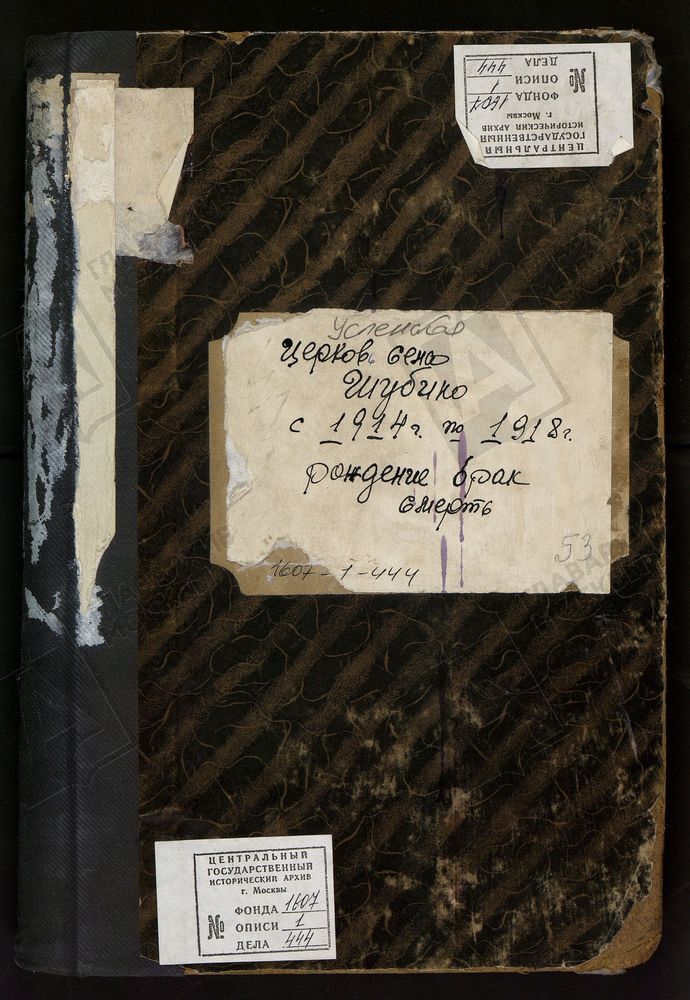 ЦЕНТРАЛЬНЫЙ
ГОСУДАРСТВЕННЫЙ
ИСТОРИЧЕСКИЙ АРХИВ
г. Москвы
ФОНДА 1607
№ ОПИСИ 1
ДЕЛА 444
Успенская
Церковь села
Шубино
с 1914 г. по 1918 г.
рождение брак
смерть
53
1607-1-444
ЦЕНТРАЛЬНЫЙ
ГОСУДАРСТВЕННЫЙ
ИСТОРИЧЕСКИЙ АРХИВ
г. Москвы
ФОНДА 1607
№ ОПИСИ 1
ДЕЛА 444